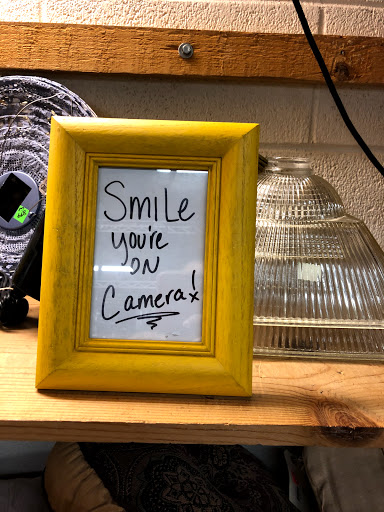 Smile
you're
on
Camera!